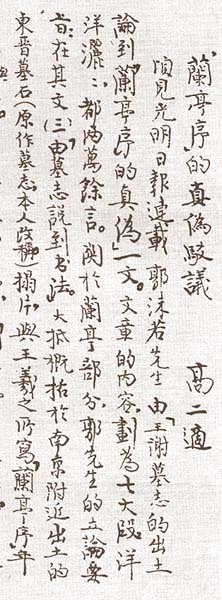 "蘭亭序"的真偽駁議 高二適
頃見光明日報連載郭沫若先生由"王謝墓志的出土
論到蘭亭序的真偽"一文。文章的内容,劃為七大段,洋
洋灑灑,都两萬餘言。関於蘭亭部分,郭先生的立論要
旨,在其文(三)由墓志說到书法。大抵概括於南京附近出土的
東晋墓石(原作墓志,本人改稱)搨片,與王羲之所寫"蘭亭序"年